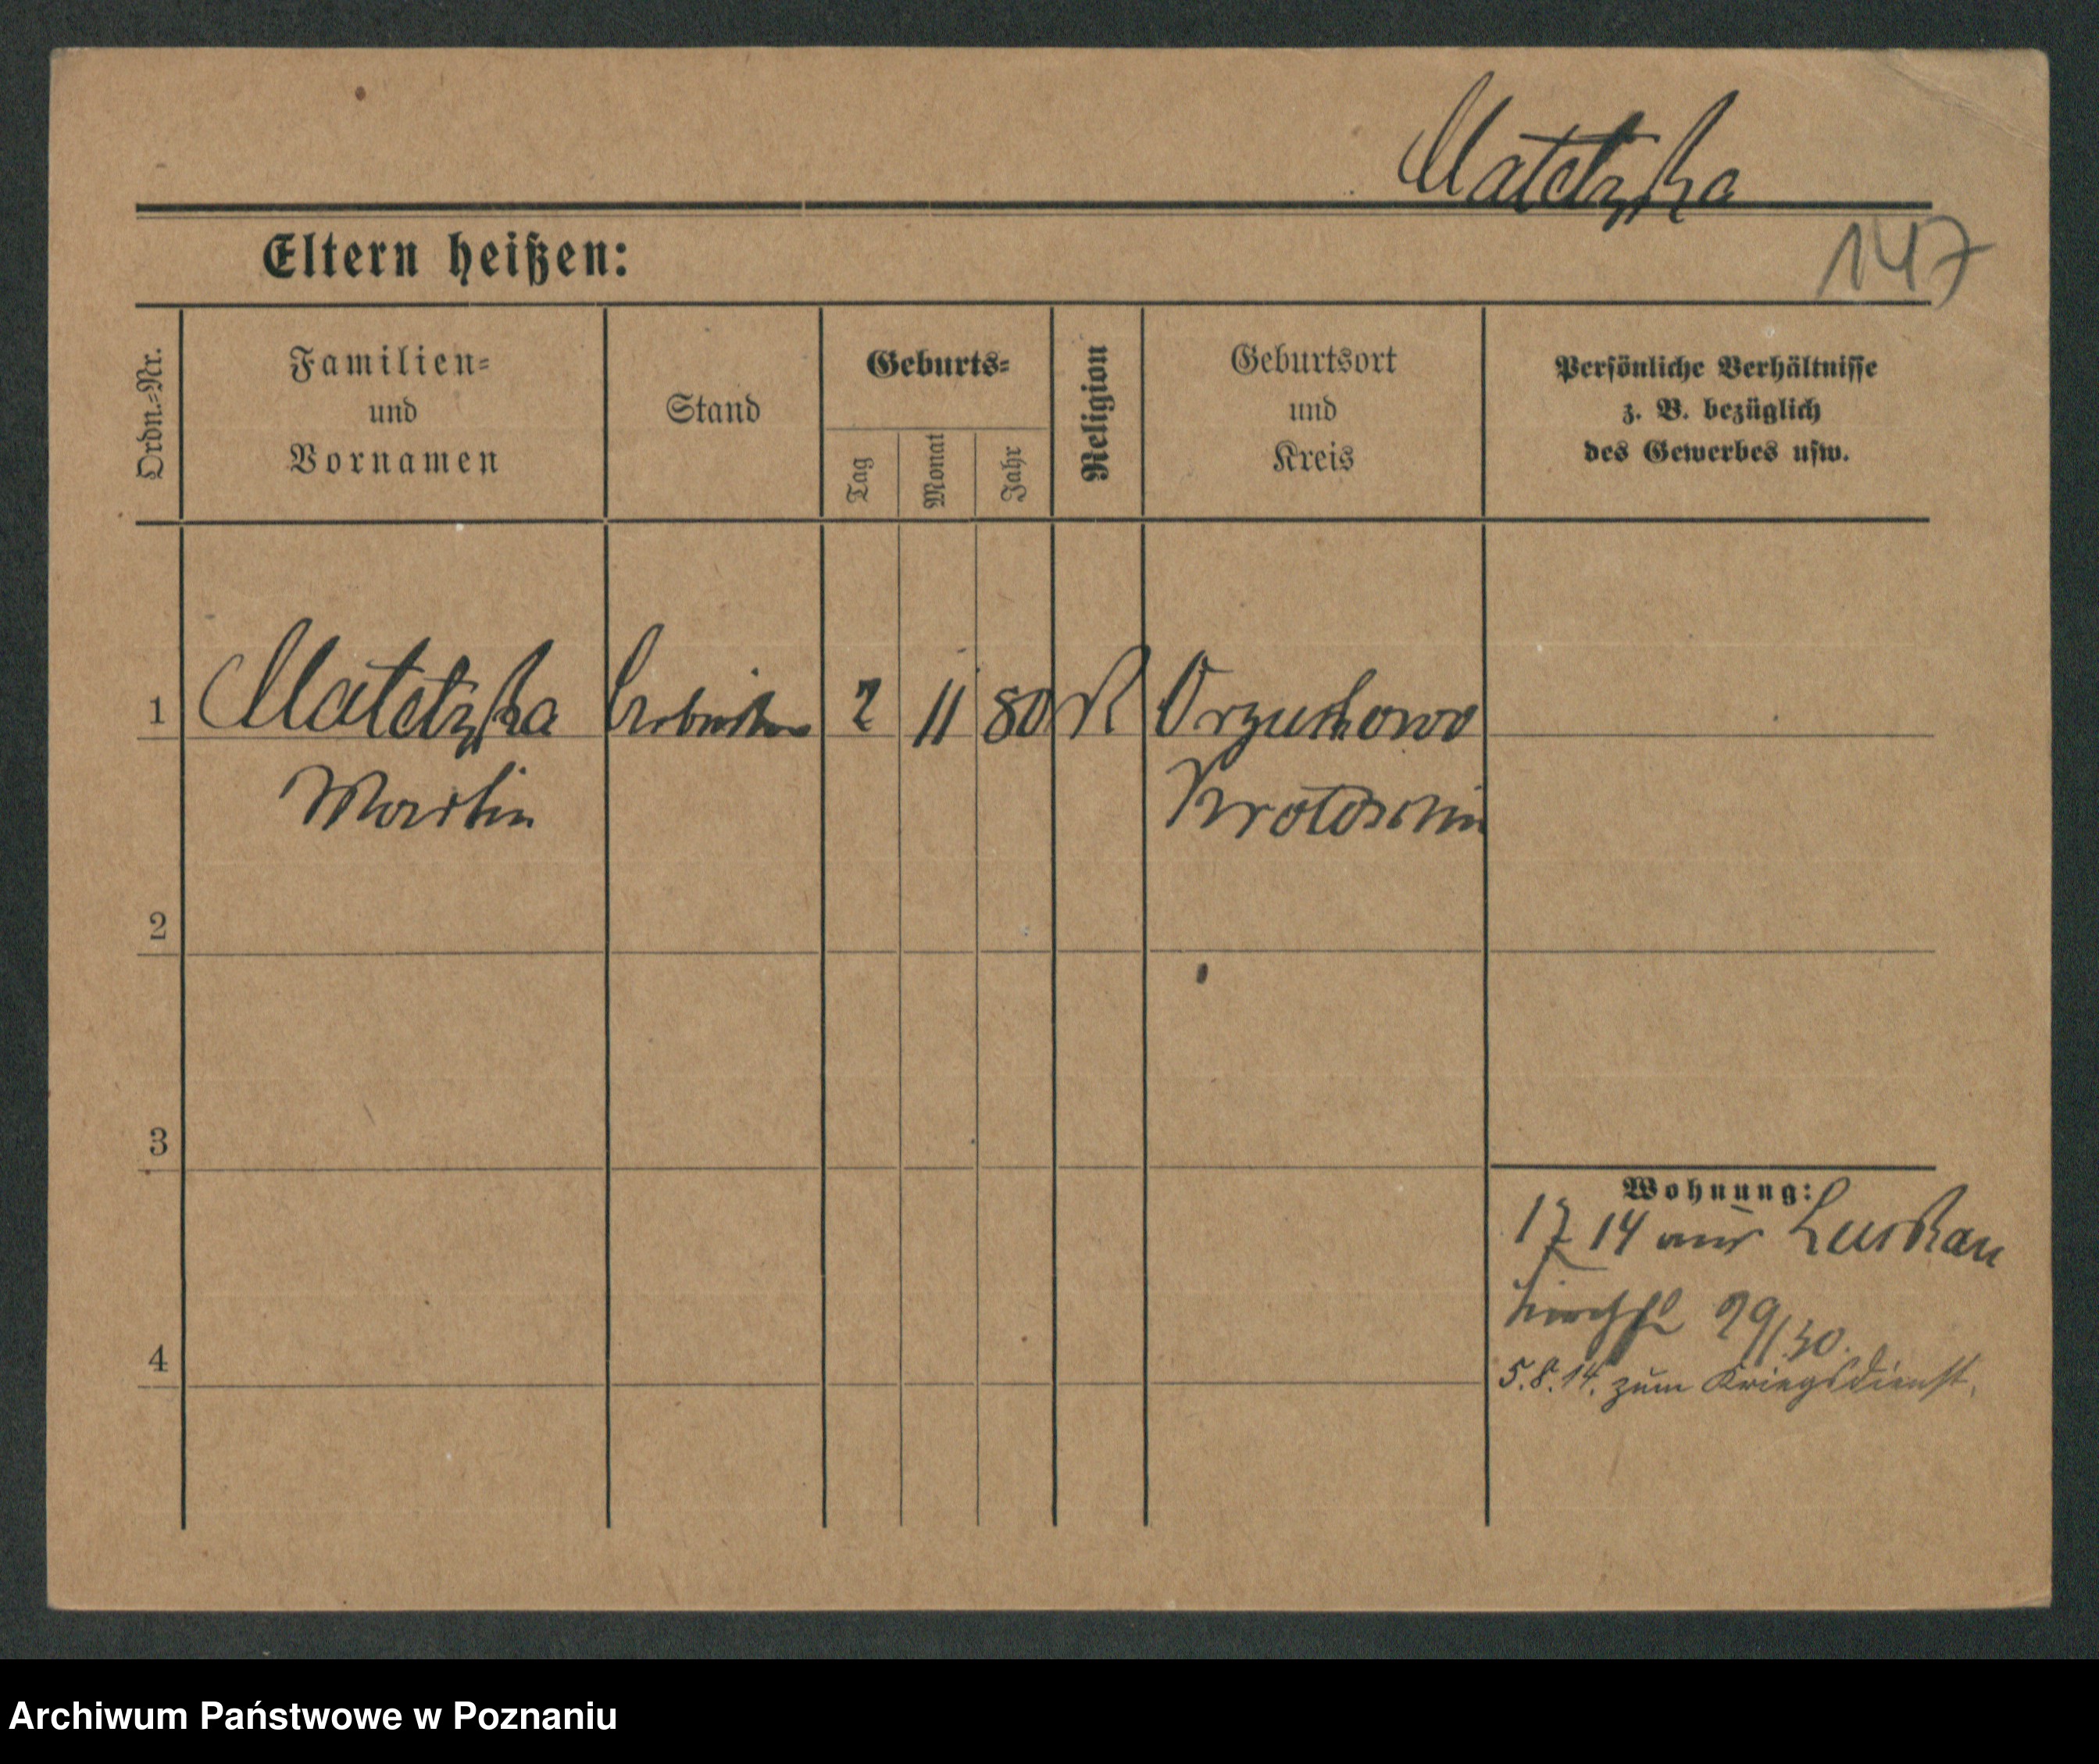 Matetzka
147
Eltern heißen:
Ordn.-Nr.
Familien-
und
Vornamen
Stand
Geburts-
Tag
Monat
Jahr
Religion
Geburtsort
und
Kreis
Persönliche Verhältnisse
z. B. bezüglich
des Gewerbes usw.
1 Matetzka Arbeiter 2 11 80 K Orzuchowo
Martin Krotoschin
2
3
4
Wohnung:
17 14 aus Luskau
29/30.
5.8.14. zum Kriegsdienst.
Archiwum Państwowe w Poznaniu